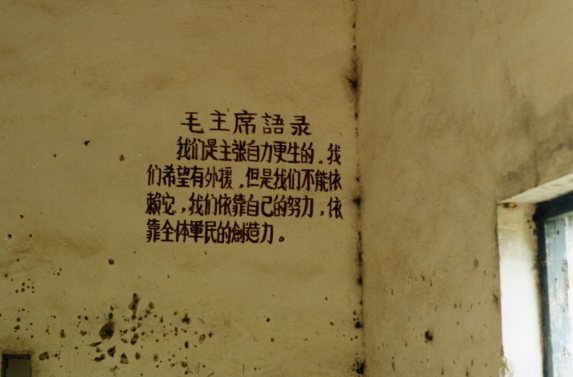 毛主席語录
我们是主张自力更生的。我
们希望有外援，但是我们不能依
赖它，我们依靠自己的努力，依
靠全体軍民的創造力。